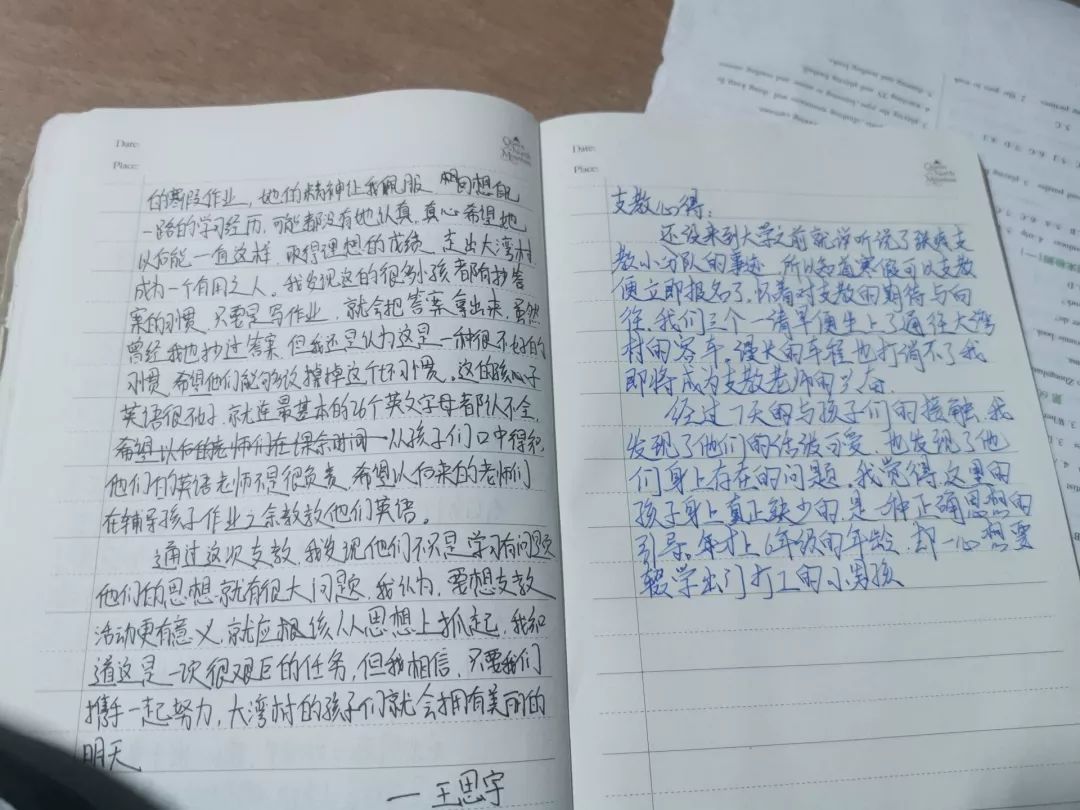 Date:
Place:
的寒假作业，她的精神让我佩服 回想自己
一路的学习经历，可能都没有她认真，真心希望她
以后能一直这样，取得理想的成绩，走出大湾村
成为一个有用之人。我发现这的很多小孩都有抄答
案的习惯，只要是写作业，就会把答案拿出来，虽然
曾经我也抄过答案，但我还是认为这是一种很不好的
习惯，希望他们能够改掉这个坏习惯。这的孩子
英语很不好，就连最基本的26个英文字母都认不全，
希望以后的老师们在课余时间 从孩子们口中得知
他们的英语老师不是很负责，希望以后来的老师们
在辅导孩子作业之余教教他们英语。
通过这次支教，我发现他们不只是学习有问题
他们的思想就有很大问题，我认为，要想支教
活动更有意义，就应该从思想上抓起，我知
道这是一次很艰巨的任务，但我相信，只要我们
携手一起努力，大湾村的孩子们就会拥有美丽的
明天
——王思宇
Date:
Place:
支教心得：
还没来到大学之前就听说了支
教小分队的事迹，所以知道寒假可以支教
便立即报名了，怀着对支教的期待与向
往，我们三个一清早便坐上了通往大湾
村的客车，漫长的车程也打消不了我
即将成为支教老师的了奋
经过7天的与孩子们的接触，我
发现了他们的活泼可爱，也发现了他
们身上存在的问题。我觉得，这里的
孩子身上真正缺少的是一种正确思想的
引导。年才上6年级的年龄，却一心想要
辍学出门打工的小男孩